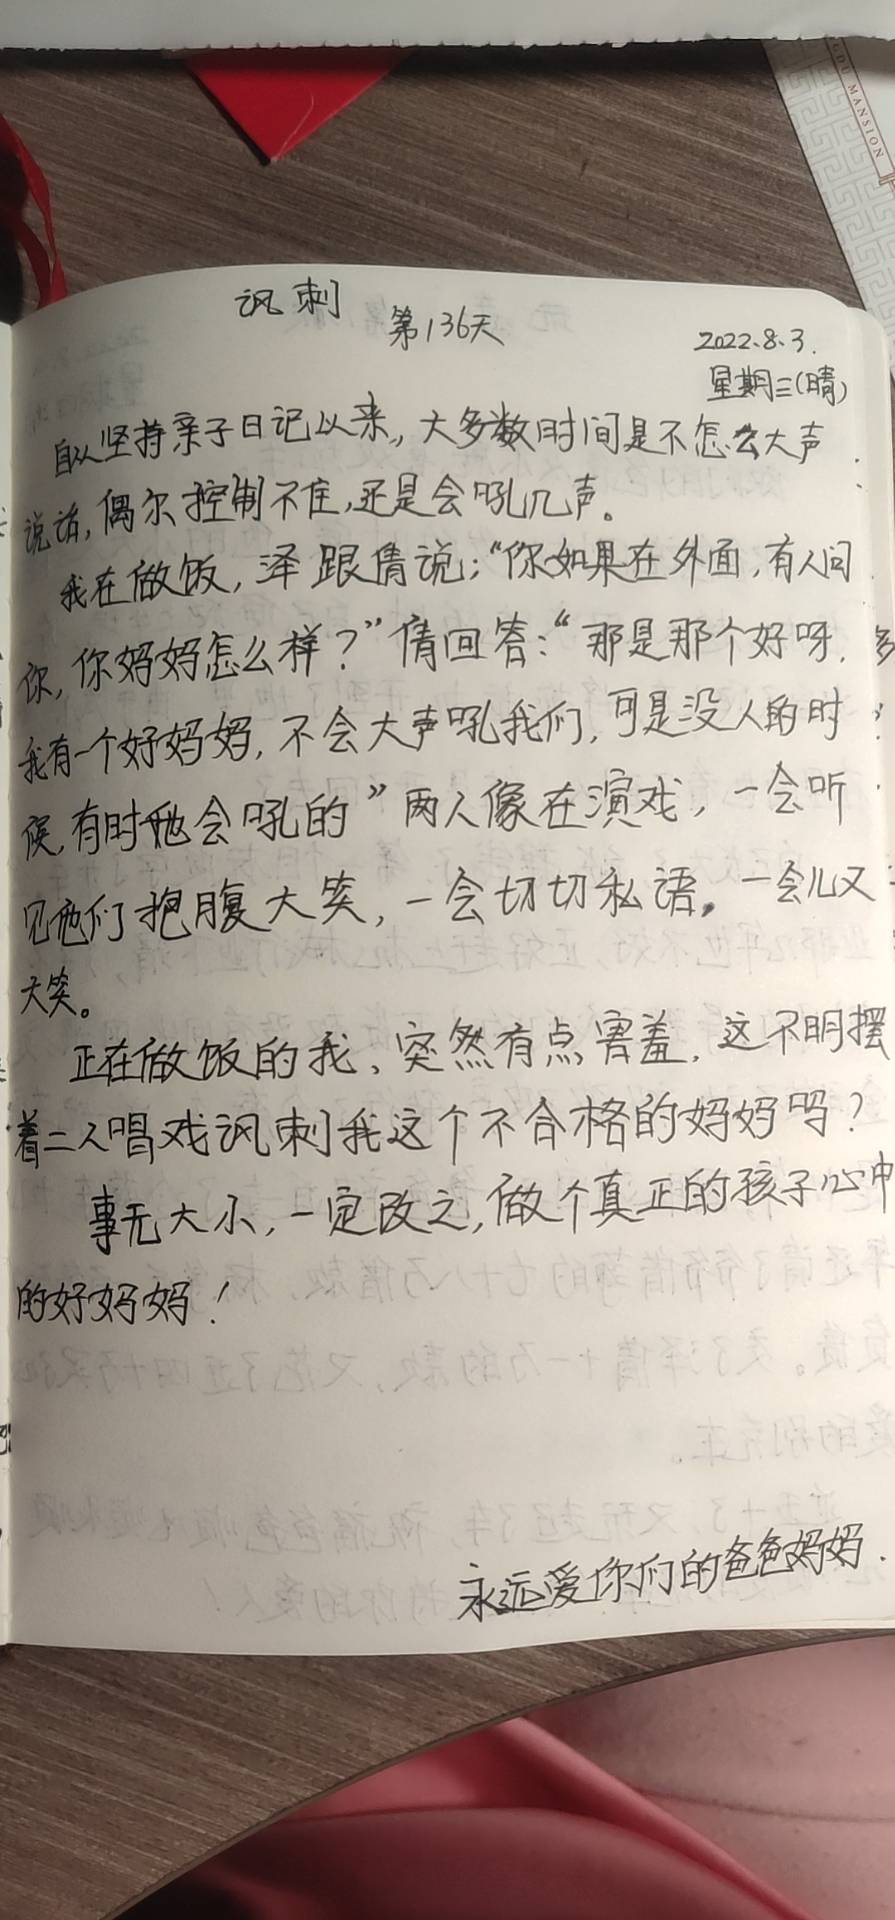 GDU MANSION
讽刺
第136天
2022.8.3.
星期三(晴)
自从坚持亲子日记以来,大多数时间是不怎么大声
说话,偶尔控制不住,还是会吼几声。
我在做饭,泽跟倩说:“你如果在外面,有人问
你,你妈妈怎么样?”倩回答:“那是那个好呀,
我有一个好妈妈,不会大声吼我们,可是没人的时
候,有时她会吼的”两人像在演戏,一会听
见他们抱腹大笑,一会切切私语,一会儿又
大笑。
正在做饭的我、突然有点害羞,这不明摆
着二人唱戏讽刺我这个不合格的妈妈吗?
事无大小,一定改之,做个真正的孩子心中
的好妈妈!
永远爱你们的爸爸妈妈.